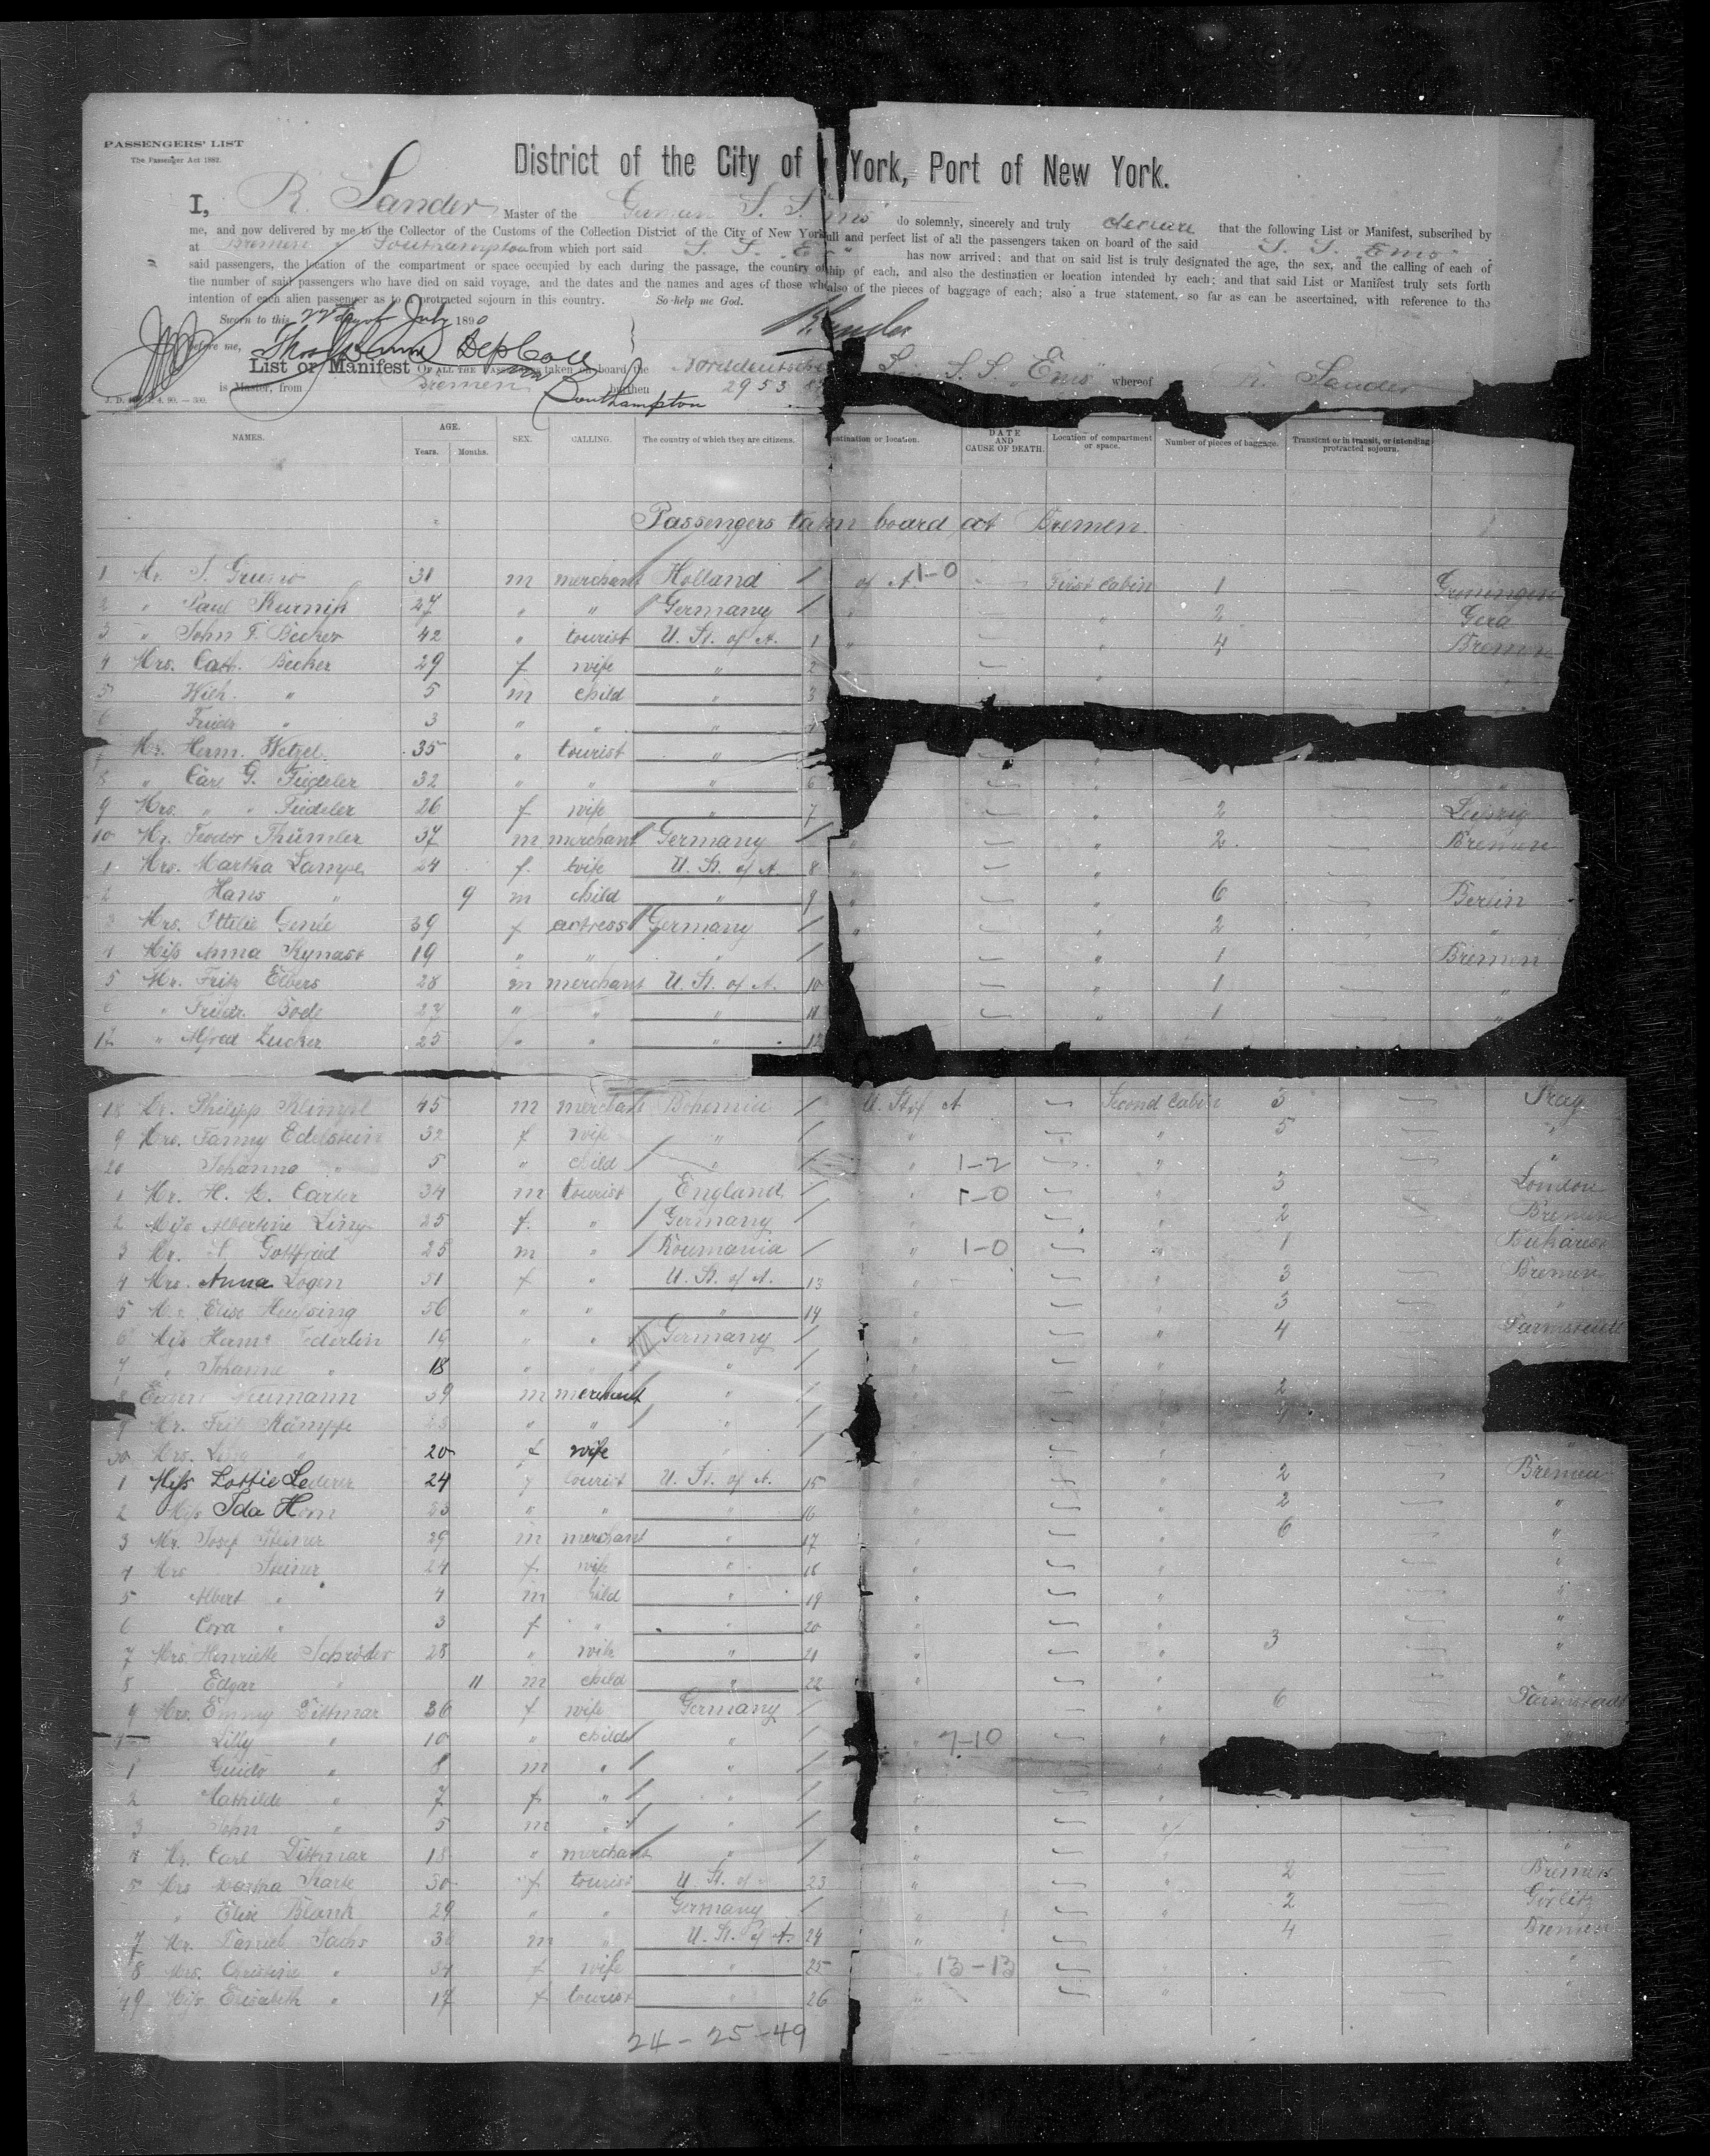 PASSENGERS' LIST
The Passenger Act 1882.
District of the City of York, Port of New York.
I, R. Sander Master of the German S. S. do solemnly, sincerely and truly declare that the following List or Manifest, subscribed by
me, and now delivered by me to the Collector of the Customs of the Collection District of the City of New York full and perfect list of all the passengers taken on board of the said S. S. "Ems"
at Bremen Southampton from which port said S. S. has now arrived; and that on said list is truly designated the age, the sex, and the calling of each of
said passengers, the location of the compartment or space occupied by each during the passage, the country of ship of each, and also the destination or location intended by each; and that said List or Manifest truly sets forth
the number of said passengers who have died on said voyage, and the dates and the names and ages of those who also of the pieces of baggage of each; also a true statement, so far as can be ascertained, with reference to the
intention of each alien passenger as to a protracted sojourn in this country. So help me God.
Sworn to this 22 day of July 1890 R Sander
before me,
List or Manifest OF ALL THE PASSENGERS taken on board the S. S. "Ems" whereof R. Sander
is Master, from Bremen Southampton burthen 2953
NAMES. AGE. Years. Months. SEX. CALLING. The country of which they are citizens. destination or location. DATE AND CAUSE OF DEATH. Location of compartment or space. Number of pieces of baggage. Transient or in transit, or intending protracted sojourn.
Passengers board at Bremen.
1 Mr. 31 m merchant Holland of A 1-0 First Cabin 1 Groningen
2 " Paul Kurnik 27 " " Germany " 2 Gera
3 " John F. Becker 42 " tourist U. St. of A. 1 " 4 Bremen
4 Mrs. Cath. Becker 29 f wife " 2
5 Wilh. " 5 m child " 3
6 Friedr " 3 " " " 4
Mr. Herm. Wetzel 35 " tourist "
8 " Carl G. Fiedeler 32 " " " 6
9 Mrs. " " Fiedeler 26 f wife " 7 " 2 Leipzig
10 Mr. Feodor Thümler 37 m merchant Germany " 2 Bremen
1 Mrs. Martha Lampe 24 f. wife U. St. of A 8 "
2 Hans " 9 m child " 9 " 6 Berlin
3 Mrs. Ottilie Genée 39 f actress Germany " 2 "
4 Miss Anna Kynast 19 " " " " 1 Bremen
5 Mr. Fritz Elbers 28 m merchant U. St. of A. 10 " 1 "
6 " Friedr. Bode 27 " " " 11 " 1 "
17 " Alfred Zucker 25 " " " 12
18 Philipp 45 m merchant Bohemia U. St of A Second Cabin 3 Prag
9 Mrs. Fanny Edelstein 32 f wife " " " 5 "
20 Johanna " 5 " child " 1-2 " "
1 Mr. H. Carter 34 m tourist England " 1-0 " 3 London
2 Miss Albertine Ling 25 f. " Germany " 2 Bremen
3 Mr. Gottfried 25 m " Roumania " 1-0 " 1 Bukarest
4 Mrs. Anna Logen 51 f " U. St. of A. 13 " " 3 Bremen
5 Mrs Elise Heusing 56 " " " 14 " " 3 "
6 Miss 19 " " Germany " " 4 Darmstadt
7 " Johanne " 18 " " " " "
8 Eugen Neumann 39 m merchant " 2
9 Mr. Fritz Kämpfe 23 " " "
30 Mrs. 20 f wife " "
1 Miss Lottie Lederer 24 f tourist U. St. of A. 15 2 Bremen
2 Miss Ida Horn 23 " " " 16 " 2 "
3 Mr. Josef Steiner 29 m merchant " 17 " " 6 "
4 Mrs Steiner 24 f wife " 18 " " "
5 Albert " 4 m child " 19 " " "
6 Cora " 3 f " " 20 " " "
7 Mrs. Henriette Schröder 28 " wife " 21 " " 3 "
8 Edgar " 11 m child " 22 " " "
9 Mrs. Emmy Dittmar 36 f wife Germany " 6 Darmstadt
Lilly " 10 " child " " 7-10 " "
1 Guido " 8 m " " "
2 Mathilde " 7 f " " " "
3 John " 5 m " " " "
4 Mr. Carl Dittmar 18 " merchant " " " "
5 Mrs Martha 30 f tourist U. St. of 23 " " 2 Bremen
" Elise Blank 29 " " Germany " " 2 Görlitz
7 Mr. Sachs 3 m " U. St. of A. 24 " 4 Bremen
8 Mrs. Christine " 34 f wife " 25 " 13-13 " "
49 Miss Elisabeth " 17 f tourist " 26 " "
24 - 25 - 49